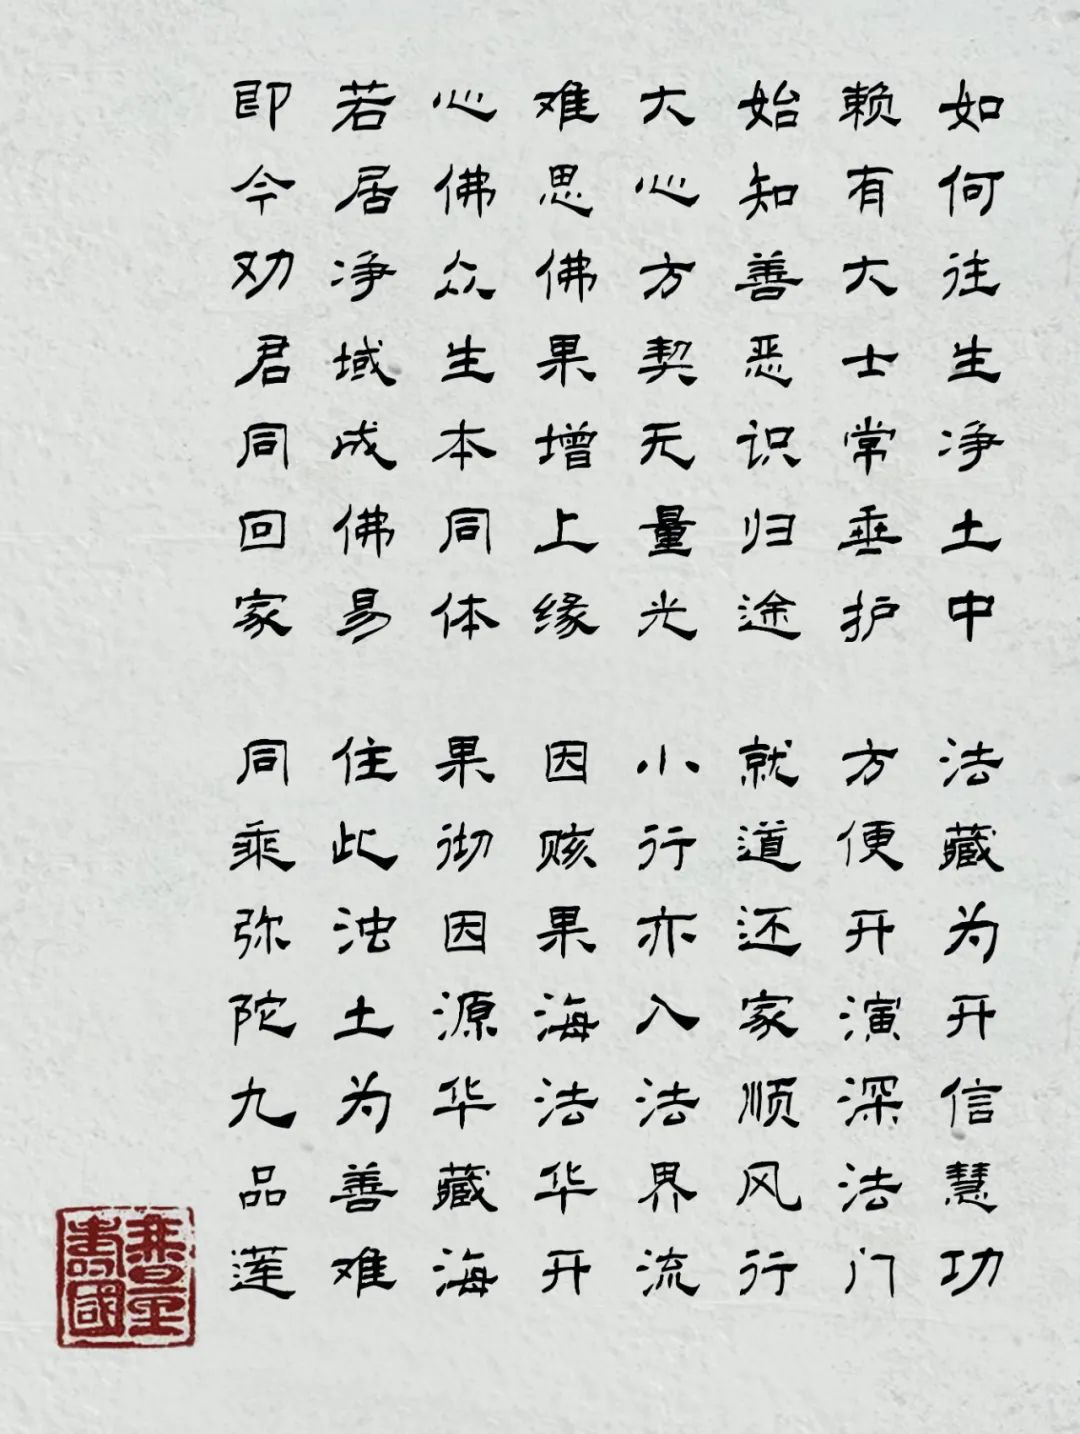 如何往生净土中 法藏为开信慧功
赖有大士常垂护 方便开演深法门
始知善恶识归途 就道还家顺风行
大心方契无量光 小行亦入法界流
难思佛果增上缘 因赅果海法华开
心佛众生本同体 果彻因源华藏海
若居净域成佛易 住此浊土为善难
即今劝君同回家 同乘弥陀九品莲